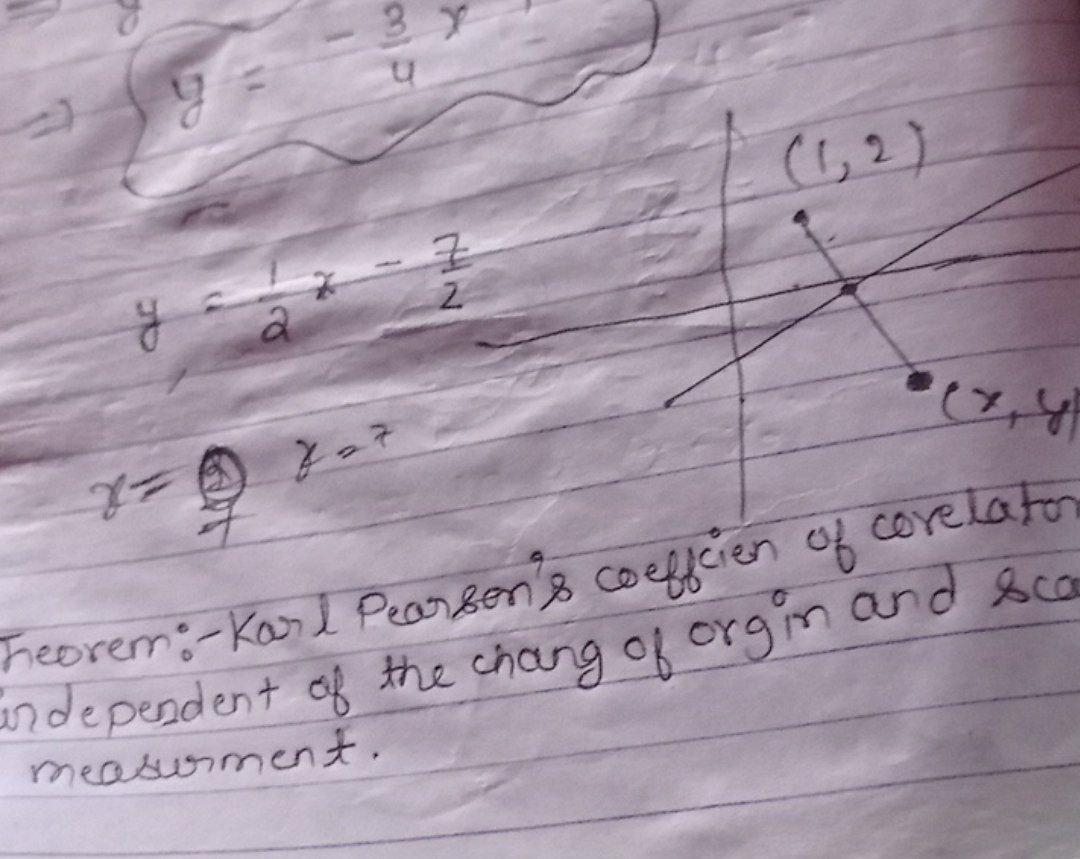 ⇒ y = - 3/4 x
(1, 2)
y = 1/2 x - 7/2
(x, y)
x = 7 x = 7
Theorem:- Karl Pearson's coefficien of corelaton
independent of the chang of orgin and sca
measurment.